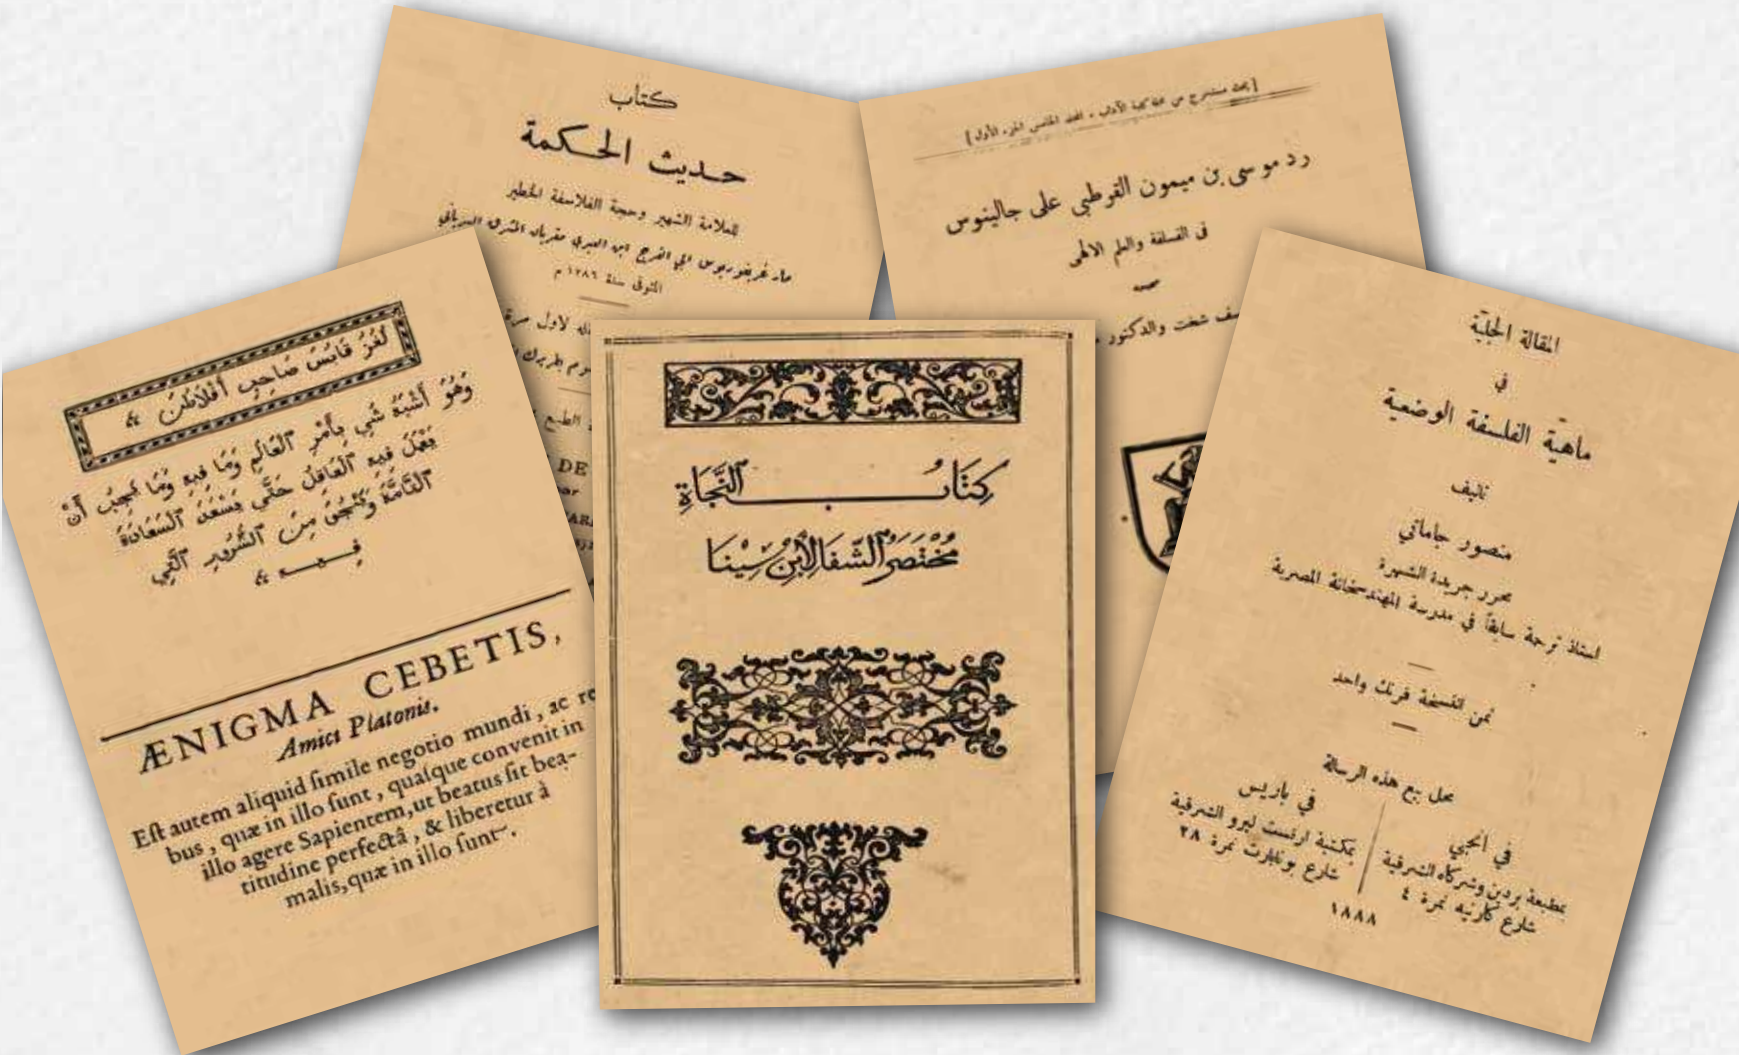 كتاب
حديث الحكمة
للعلامة الشهير وحجة الفلاسفة الخطير
مار غريغوريوس ابي الفرج ابن العبري مفريان المشرق السرياني
المتوفى سنة ١٢٨٦ م
لاول مرة
الطبع
DE
[بحث مستخرج من مجلة كلية الآداب ، المجلد الخامس الجزء الأول]
رد موسى بن ميمون القرطبى على جالينوس
فى الفلسفة والعلم الالهى
شخت والدكتور
لُغْزُ قَابِسَ صَاحِبِ أَفْلَاطُنَ
وَهُوَ أَشْبَهُ شَيْ بِأَمْرِ ٱلْعَالَمِ وَمَا فِيهِ وَمَا يَجِبُ أَنْ
يَعْمَلَ فِيهِ ٱلْعَاقِلُ حَتَّى يَسْعَدَ ٱلسَّعَادَةَ
ٱلتَّامَّةَ وَيَنْجُوَ مِنَ ٱلشُّرُورِ ٱلَّتِي
فِيهِ
ÆNIGMA CEBETIS,
Amici Platonis.
Eſt autem aliquid ſimile negotio mundi, ac re
bus, quæ in illo ſunt, quaſque convenit in
illo agere Sapientem, ut beatus ſit bea-
titudine perfectâ, & liberetur à
malis, quæ in illo ſunt.
كِتَابُ ٱلنَّجَاةِ
مُخْتَصَرُ ٱلشِّفَا لِٱبْنِ سِينَا
المقالة الجليّة
في
ماهيّة الفلسفة الوضعية
تاليف
منصور جاماتي
محرر جريدة الشهرة
استاذ ترجمة سابقاً في مدرسة المهندسخانة المصرية
ثمن النسخة فرنك واحد
محل بيع هذه الرسالة
في انجي
بمطبعة بردين وشركاه الشرقية
شارع كارنيه نمرة ٤
في باريس
بمكتبة ارنست لرو الشرقية
شارع بونابارت نمرة ٢٨
١٨٨٨